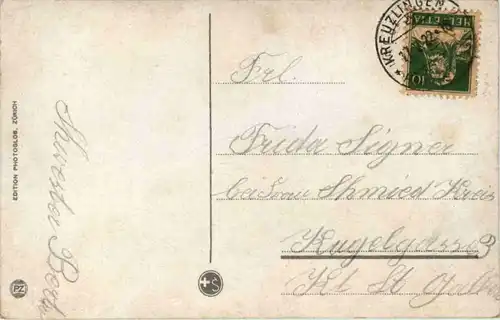 KREUZLINGEN
HELVETIA
10
Frl.
Frida Signer
bei Frau Schmied Kreis
Kugelgasse 3
Kt St Galle
Schwester Berth
EDITION PHOTOGLOB, ZÜRICH
PZ
S